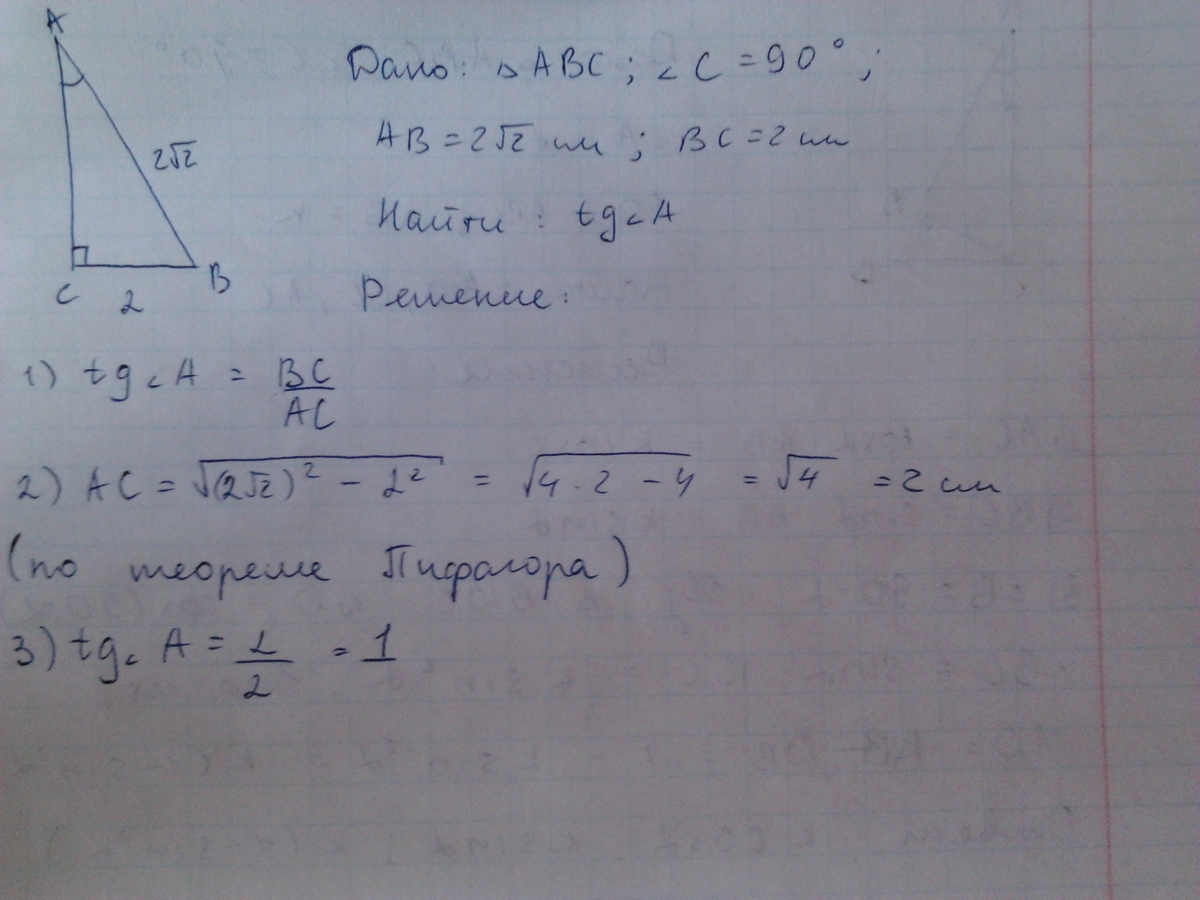 A
Дано: △ ABC; ∠ C = 90°;
AB = 2√2 см; BC = 2 см
2√2
Найти: tg∠A
C
B
2
Решение:
1) tg∠A = BC/AC
2) AC = √(2√2)² - 2² = √4·2 - 4 = √4 = 2 см
(по теореме Пифагора)
3) tg∠A = 2/2 = 1